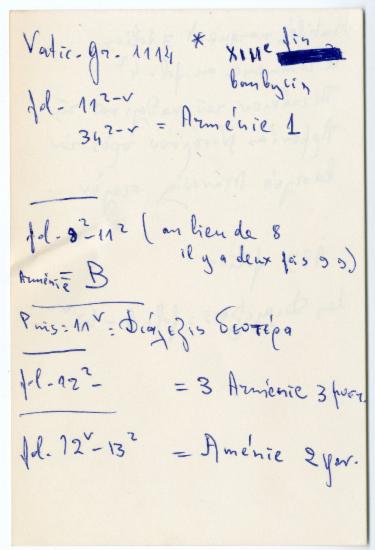 Vatic. gr. 1114 * XIIIe fin
bombycin
fol. 11r-v
34r-v = Arménie 1
fol. 8r-11r (au lieu de 8
il y a deux fois 9 9.)
Arménie = B
Puis = 11v = Διάλεξις δευτέρα
fol. 12r- = 3 Arménie 3
fol. 12v-13r = Aménie 2